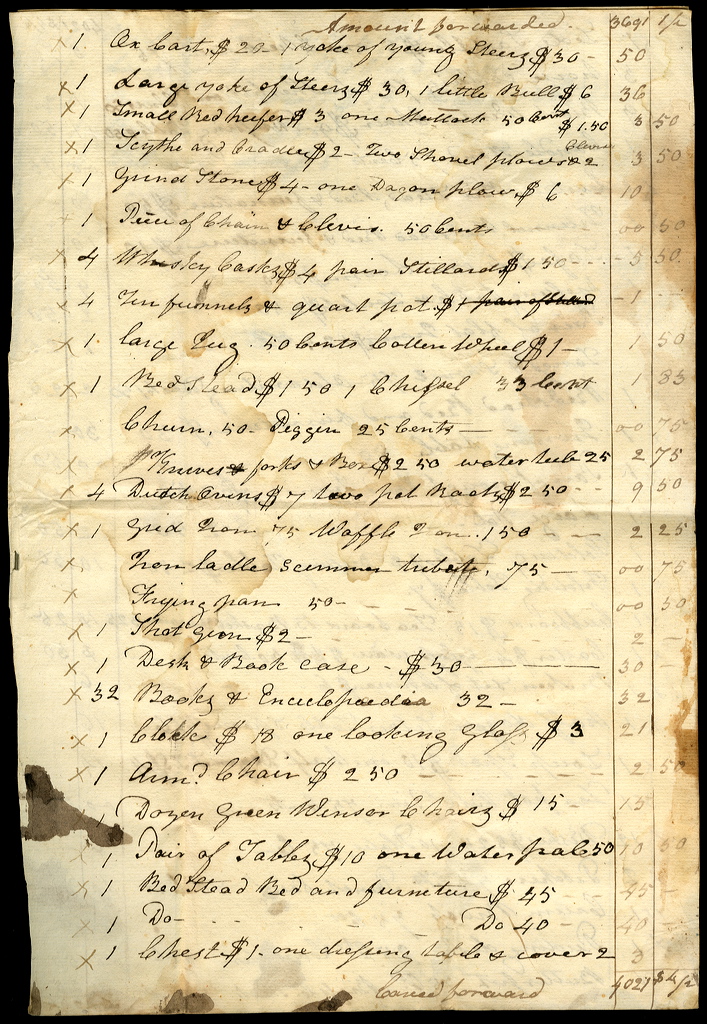 Amount forwarded 3691 1/2
x 1 Ox Cart, $ 20 1 yoke of young Steers $ 30 - 50
x 1 Large yoke of Steers $ 30, 1 little Bull $ 6 36
x 1 Small Red heifer $ 3 one Mattock 50 Cent 3 50
$ 1.50 Clevis
x 1 Scythe and Cradle $ 2 - Two Shovel plows & 2 3 50
x 1 Grind Stone $ 4 - one Dagon plow, $ 6 10
x 1 Piece of Chain & Clevis. 50 Cents 00 50
x 4 Whisky Casks $ 4 pair Stillards $ 1 50 - - - 5 50
x 4 Tin funnels & quart pot. $ 1 pair of Still - 1 -
x 1 large Jug. 50 Cents Cotten Wheel $ 1 - 1 50
x 1 Bed Stead $ 1 50 1 Chissel 33 Cent 1 83
x Churn, 50 - Piggin 25 Cents — 00 75
x Knives & forks & Box $ 2 50 water tub 25 2 75
x 4 Dutch Ovins $ 7 two pot Racks $ 2 50 - - 9 50
x 1 Grid Iron 75 Waffle Iron. 1 50 - - 2 25
x Iron ladle, scummer 75 — 00 75
x Frying pan 50 - 00 50
x 1 Shot gun $ 2 - 2 -
x 1 Desk & Book case - $ 30 — 30 -
x 32 Books & Encuclopaedia 32 - 32
x 1 Clock $ 18 one looking Glass $ 3 21
x 1 Armd Chair $ 2 50 2 50
1 Dozen Green Winsor Chairs $ 15 - 15
x 1 Pair of Tables, $ 10 one Water pale 50 10 50
x 1 Bed Stead Bed and furneture $ 45 45 -
x 1 Do - Do 40 - 40 -
x 1 Chest $ 1 - one dressing table & cover 2 3
Caried forward 4021 $ 4/2